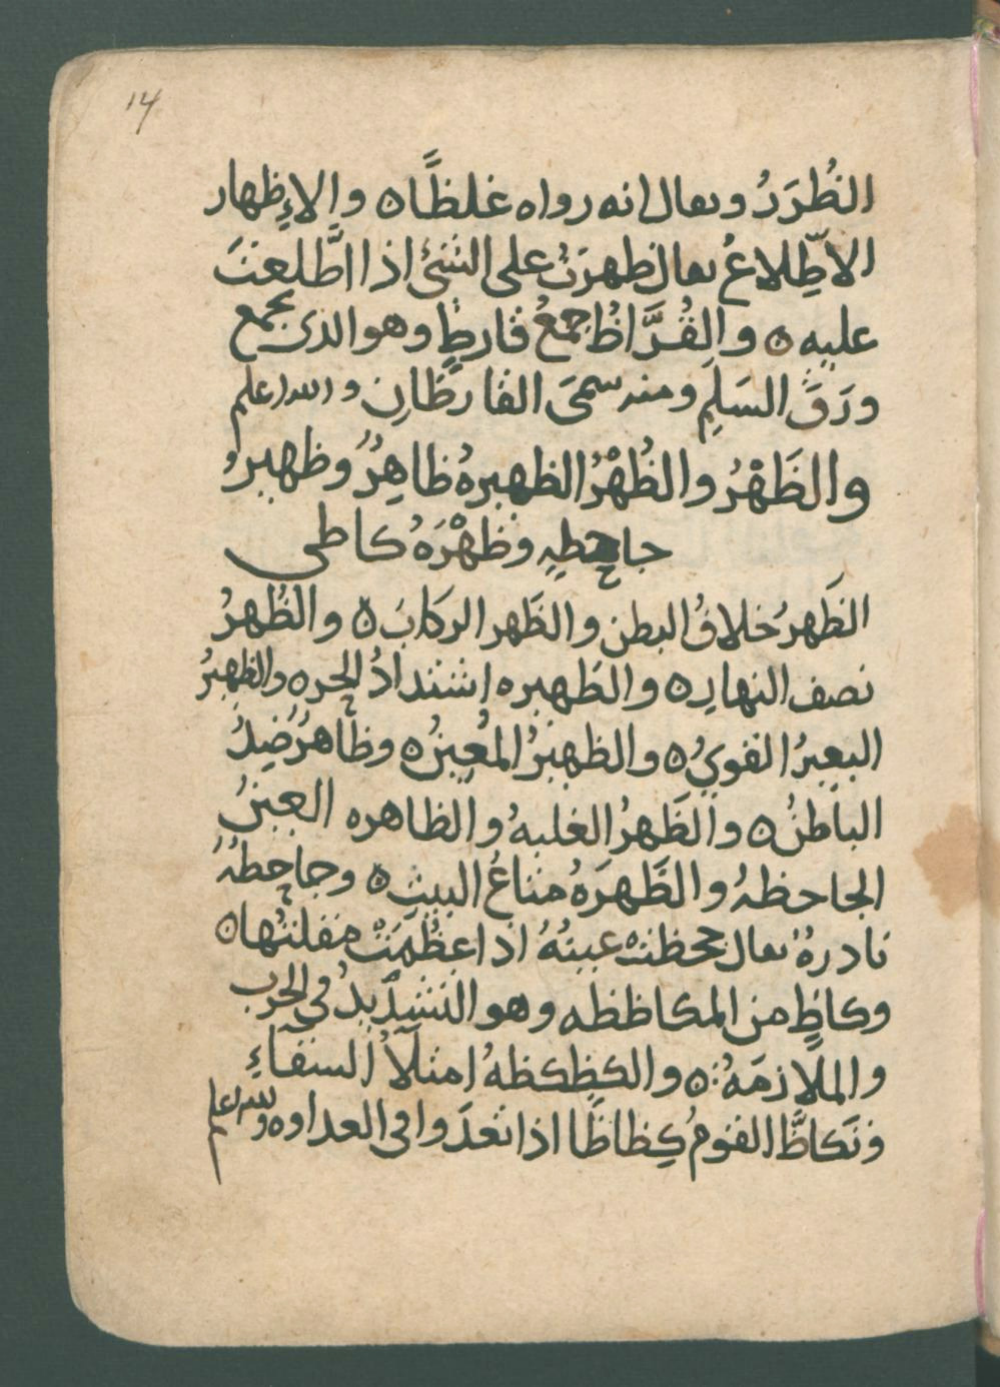 14
الطُرَدُ ويقال انه رواه غلظًا ه والإظهار
الاطِّلاعُ يقال ظهرتُ على الشئ اذا اطَّلعتَ
عليه ه والقُرَّاظُ جمعُ قارظٍ وهو الذى يجمع
ورَقَ السَلَمِ ومنه سمىَ القارظان والله اعلم
والظَهْرُ والظُهْرُ الظهيرةُ ظاهِرُ وظهيرُ
جاحظه وظَهْرَةُ كاظى
الظَهرُ خلافُ البطن والظَهر الركابُ ه والظُهرُ
نصف النهار ه والظهيره اشتدادُ الحر ه والظهيرُ
البعيرُ القويُ ه والظهيرُ المُعينُ ه وظاهرُ ضِدُ
الباطنُ ه والظَهرُ الغلبهُ والظاهره العينُ
الجاحظهُ والظَّهرَةُ متاعُ البيت ه وجاحظهُ
نادرهُ يقال جحظتْ عينُهُ اذا عظُمَتْ مقلتُها ه
وكاظٍ من المكاظظه وهو الشديدُ فى الحرب
والملازمَهُ ه والكظكظهُ امتلأُ السقاءِ
وتَكاظَّ القومُ كِظاظًا اذا تعدَوا فى العداوه والله اعلم